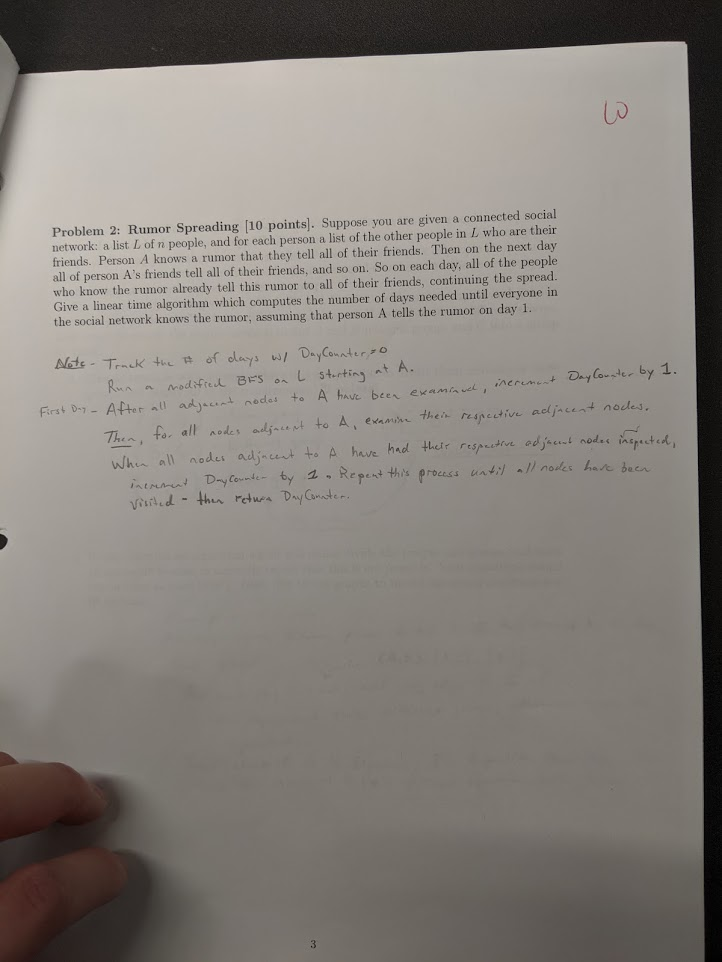 10
Problem 2: Rumor Spreading [10 points]. Suppose you are given a connected social
network: a list L of n people, and for each person a list of the other people in L who are their
friends. Person A knows a rumor that they tell all of their friends. Then on the next day
all of person A's friends tell all of their friends, and so on. So on each day, all of the people
who know the rumor already tell this rumor to all of their friends, continuing the spread.
Give a linear time algorithm which computes the number of days needed until everyone in
the social network knows the rumor, assuming that person A tells the rumor on day 1.
Note - Track the # of days w/ DayCounter = 0
Run a modified BFS on L starting at A.
First Day - After all adjacent nodes to A have been examined, increment DayCounter by 1.
Then, for all nodes adjacent to A, examine their respective adjacent nodes.
When all nodes adjacent to A have had their respective adjacent nodes inspected,
increment DayCounter by 1. Repeat this process until all nodes have been
visited - then return DayCounter.
3